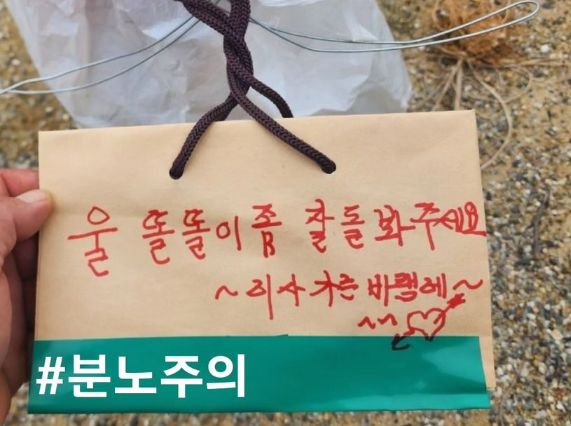 울 똘똘이 좀 잘 돌봐주세요
~이사 가는 바램에~
~~
#분노주의